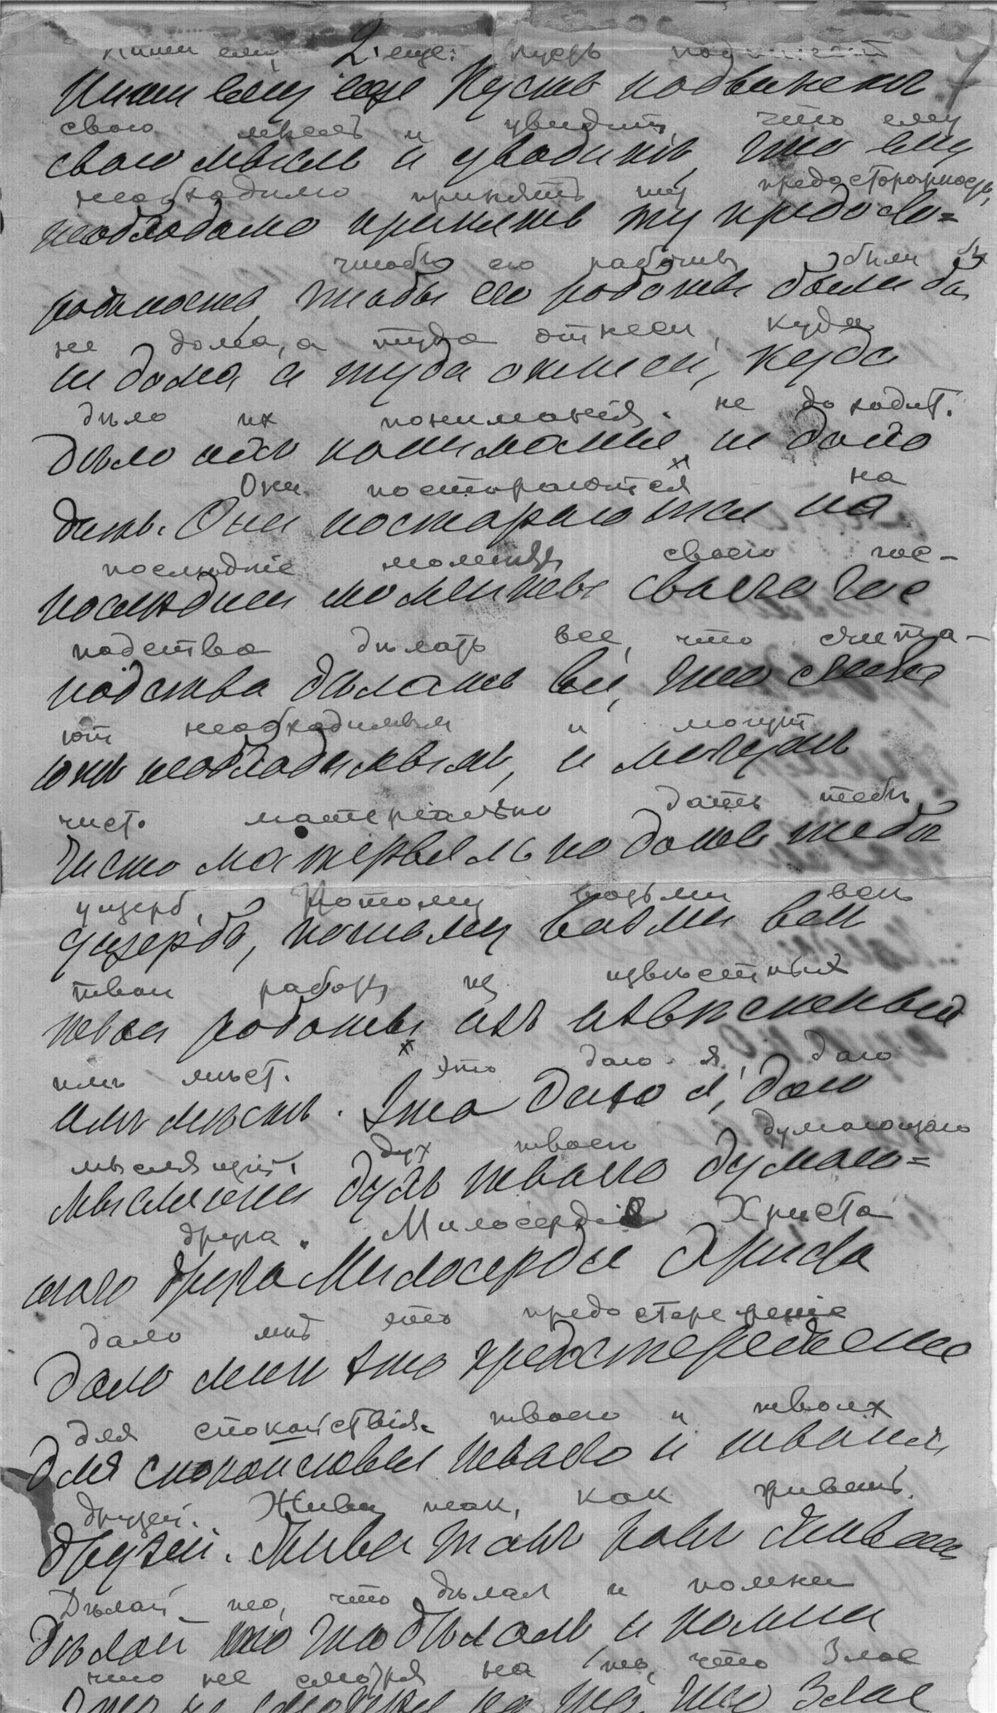 Пиши ему 2. еще: Пусть
Пиши ему еще Пусть подвинетъ
свою мысль и увидит, что ему
свою мысль и увидитъ, что ему
необходимо принять ту предосторожность,
необходимо принять ту предосто=
чтобы его работы были бы
рожность, чтобы его работы были бы
не дома, а туда отнеси, куда
не дома а туда отнеси, куда
дѣло их пониманія не доходит.
дѣло ихъ пониманія не дохо
Они постараются на
дитъ. Они постараются на
послѣдніе моменты своего гос-
послѣдніи моменты своего гос
подства дѣлать все, что счита-
подства дѣлать всё, что счита
ют необходимым и могут
ютъ необходимымъ, и могутъ
чисто матеріально дать тебѣ
чисто матерьяльно дать тебѣ
ущерб. Потому возьми вси
ущербъ, потому возми вси
твои работы из извѣстных
твои работы изъ извѣстныхъ
имъ мѣст. Это даю я, даю
имъ мѣстъ. Это даю я, даю
мыслящій дух твоего думающаго
духъ твоего думаю=
друга. Милосердіе Христа
щаго друга Милосердіе Христа
дало мнѣ это предостереженіе
дало мнѣ это предостереженіе
для спокойствія твоего и твоих
для спокойствія твоего и твоихъ
друзей. Живи так, как живешь.
друзей. Живи такъ какъ живеш
Дѣлай то, что дѣлал и помни
Дѣлай то что дѣлалъ и помни
что не смотря на то, что Злое
что не смотря на то, что Злое